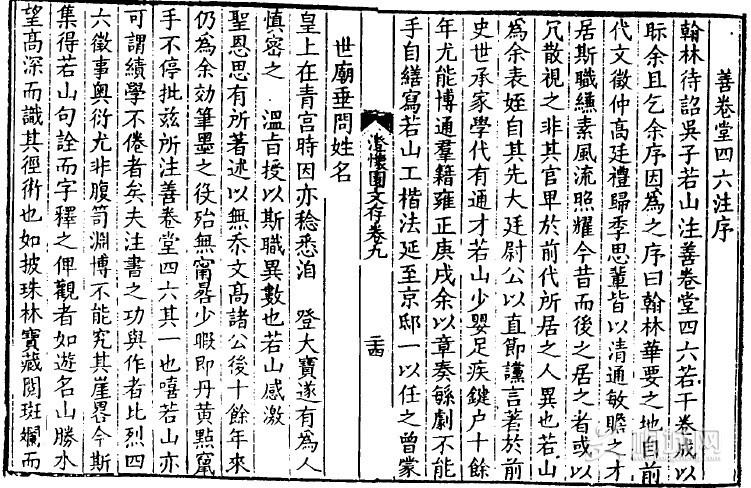 善卷堂四六注序
翰林待詔吳子若山注善卷堂四六若干卷成以
眎余且乞余序因為之序曰翰林華要之地自前
代文徵仲高廷禮歸季思輩皆以清通敏贍之才
居斯職縑素風流照耀今昔而後之居之者或以
冗散視之非其官卑於前代所居之人異也若山
為余表姪自其先大廷尉公以直節讜言著於前
史世承家學代有通才若山少嬰足疾鍵户十餘
年尤能博通羣籍雍正庚戌余以章奏緐劇不能
手自繕寫若山工楷法延至京邸一以任之曾蒙
澄懷園文存卷九
世廟垂問姓名
皇上在青宮時因亦稔悉洎 登大寶遂有為人
慎密之 溫旨授以斯職異數也若山感激
聖恩思有所著述以無忝文高諸公後十餘年來
仍為余効筆墨之役殆無甯晷少暇即丹黃點竄
手不停批兹所注善卷堂四六其一也嘻若山亦
可謂績學不倦者矣夫注書之功與作者比烈四
六徵事奧衍尤非腹笥淵博不能究其崖畧今斯
集得若山句詮而字釋之俾觀者如遊名山勝水
望高深而識其徑術也如披珠林寶藏閲斑斕而